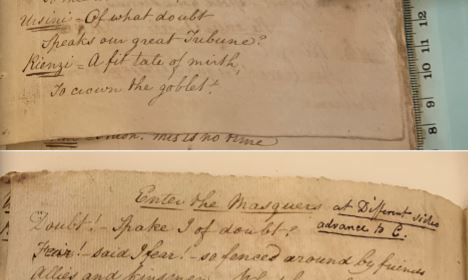 Ursini - Of what doubt
Speaks our great Tribune?
Rienzi = A fit tale of mirth,
To crown the goblet!
this is no time
Enter the Masquers at Different sides
advance to C.
Doubt! - Spake I of doubt?
Fear! - said I fear! - so fenced around by friends
Allies and kinsmen
8 9 10 11 12